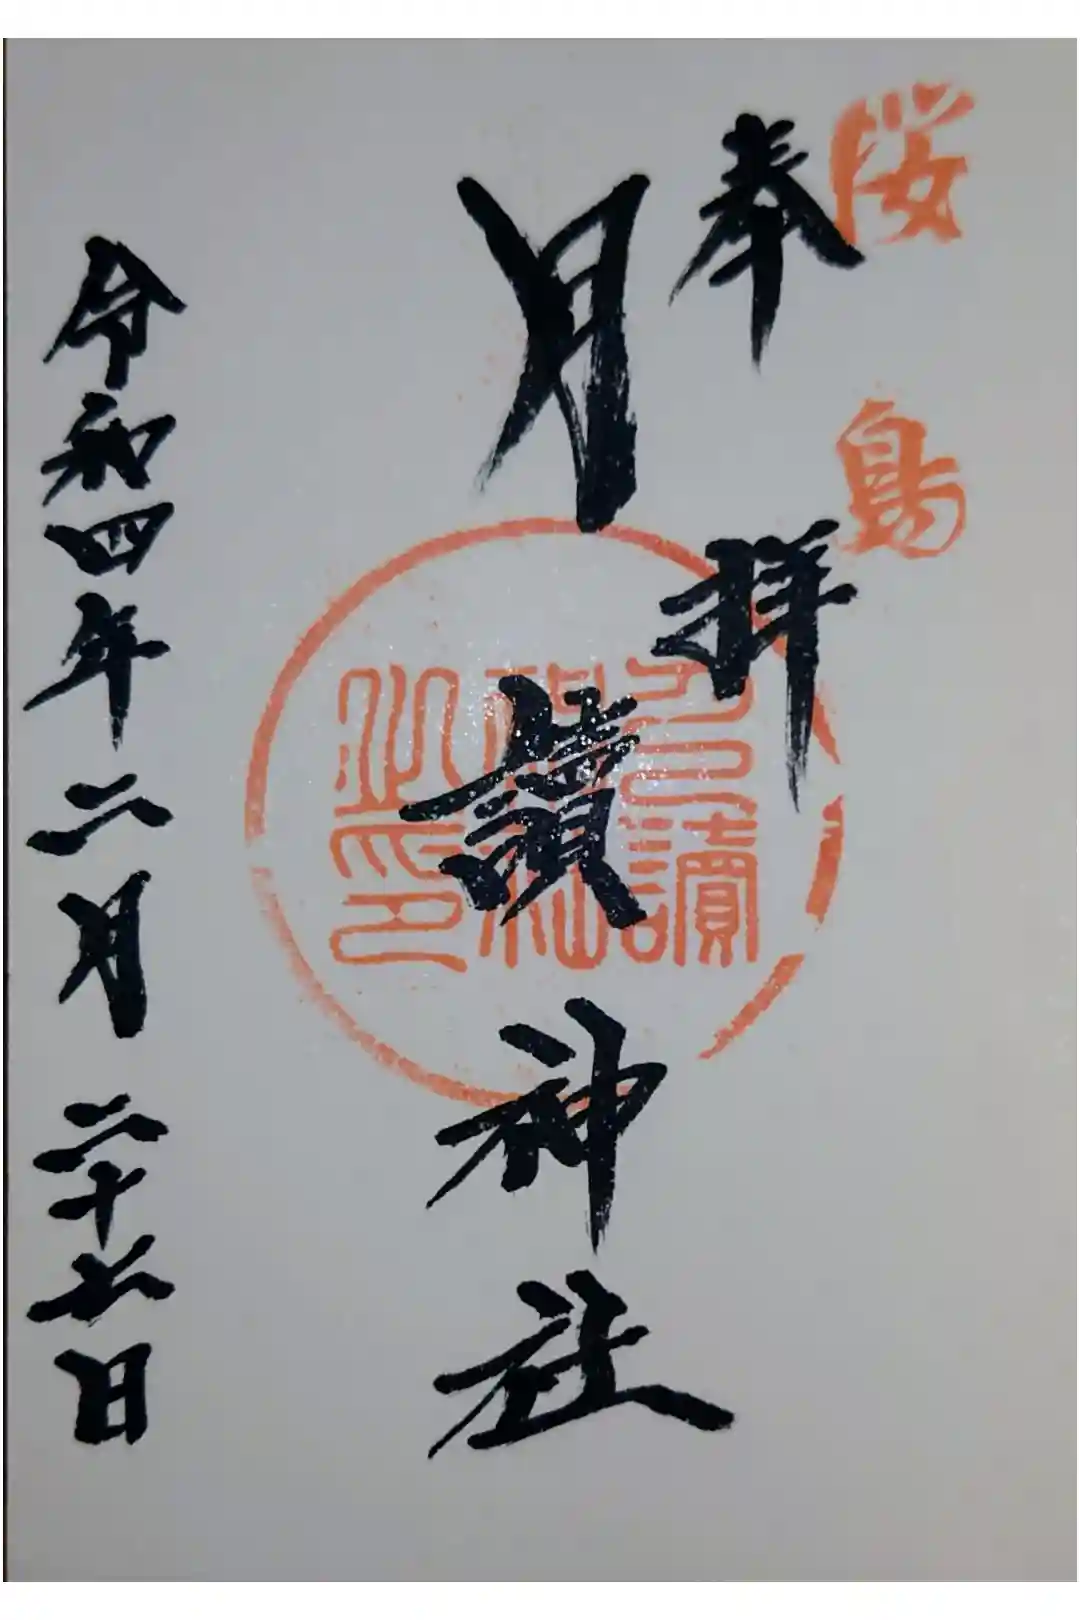 桜島
奉拝
月讀神社
月讀
神社
之印
令和四年二月二十六日